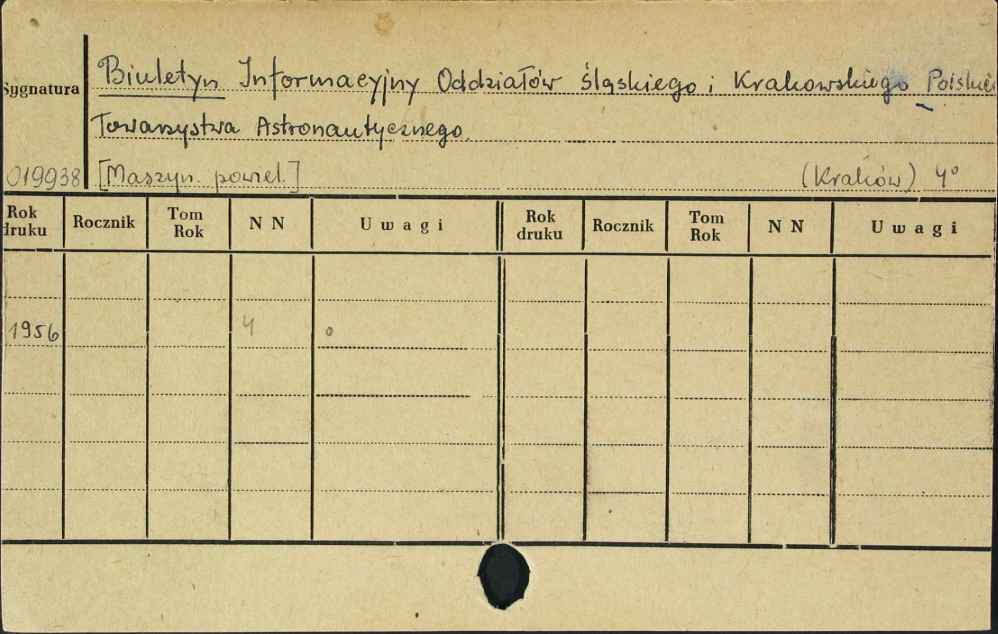 Sygnatura
Biuletyn Informacyjny Oddziałów Śląskiego i Krakowskiego Polskie
Towarzystwa Astronautycznego.
019938 [Maszyn. powiel.] (Kraków) 4°
Rok druku Rocznik Tom Rok N N Uwagi Rok druku Rocznik Tom Rok N N Uwagi
1956 4 o